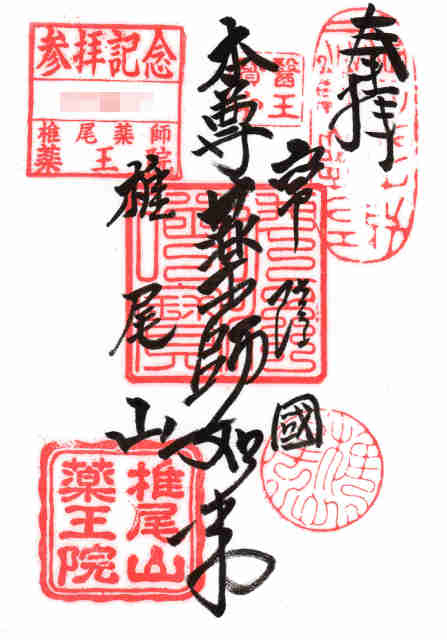 奉拝
常陸國
本尊
薬師如来
椎尾山
参拝記念
椎尾薬師
薬王院
醫王
椎尾山
薬王院